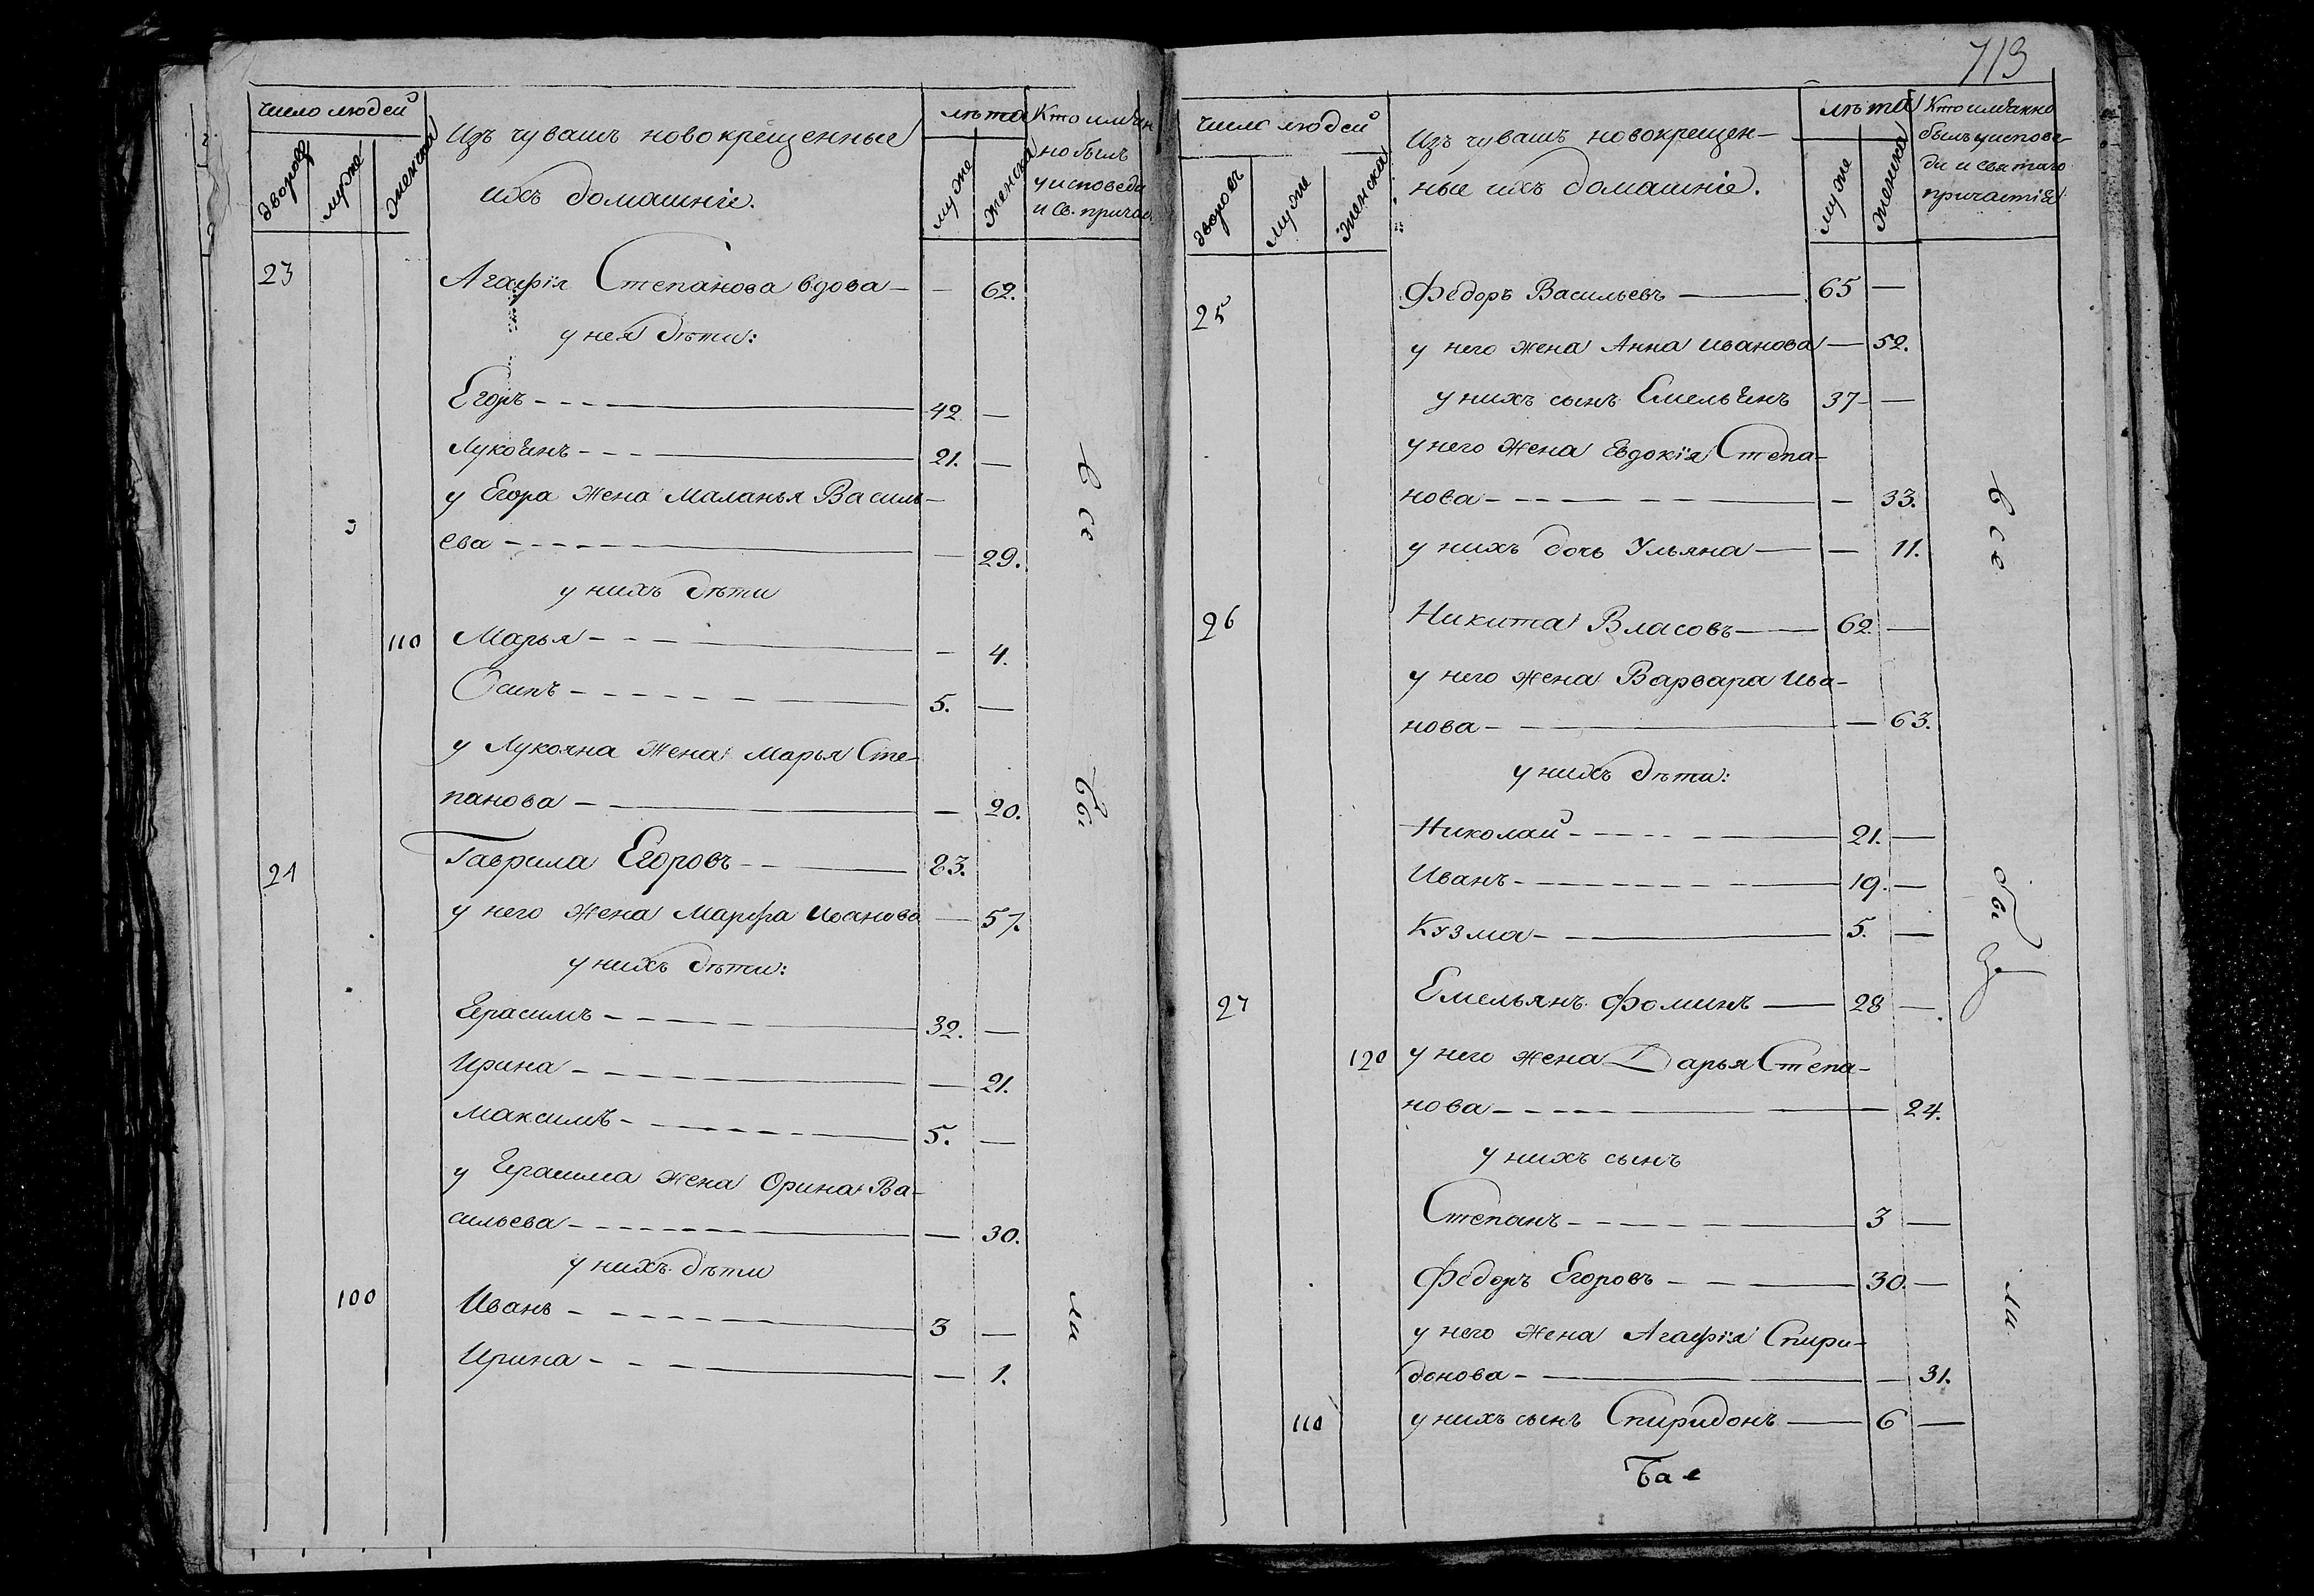 число людей
Изъ чувашъ новокрещенные
ихъ домашніе.
лѣта
Кто имѣн
но былъ
у исповеди
и св. причас.
дворовъ
муже
женска
муже
женска
23 Агафія Степанова вдова — — 62.
у нея дѣти:
Егоръ — 42 —
Лукоянъ — 21. —
у Егора жена Маланья Василь-
ева — — 29.
у нихъ дѣти
110 Марья — — 4.
Осипъ — 5. —
у Лукояна жена Марья Сте-
панова — — 20.
24 Гаврила Егоровъ — 83.
у него жена Марфа Иванова — 57.
у нихъ дѣти:
Герасимъ — 32. —
Ирина — — 21.
Максимъ — 5. —
у Герасима жена Орина Ва-
сильева — — 30.
у нихъ дѣти
100 Иванъ — 3 —
Ирина — — 1.
все
бы
ли
713
число людей
Изъ чувашъ новокрещен-
ные ихъ домашніе.
лѣта
Кто имѣнно
былъ у испове
ди и святаго
причастія
дворовъ
муже
женска
муже
женска
25 Федоръ Васильевъ — 65 —
у него жена Анна Иванова — 52.
у нихъ сынъ Емельянъ 37 —
у него жена Евдокія Степа-
нова — — 33.
у нихъ дочь Ульяна — — 11.
26 Никита Власовъ — 62. —
у него жена Варвара Ива-
нова — — 63.
у нихъ дѣти:
Николай — 21. —
Иванъ — 19. —
Кузма — 5. —
27 Емельянъ Фоминъ — 28 —
120 у него жена Дарья Степа-
нова — — 24.
у нихъ сынъ
Степанъ — 3 —
Федоръ Егоровъ — 30. —
у него жена Агафія Спири-
донова — — 31.
110 у нихъ сынъ Спиридонъ — 6 —
все
бы
ли